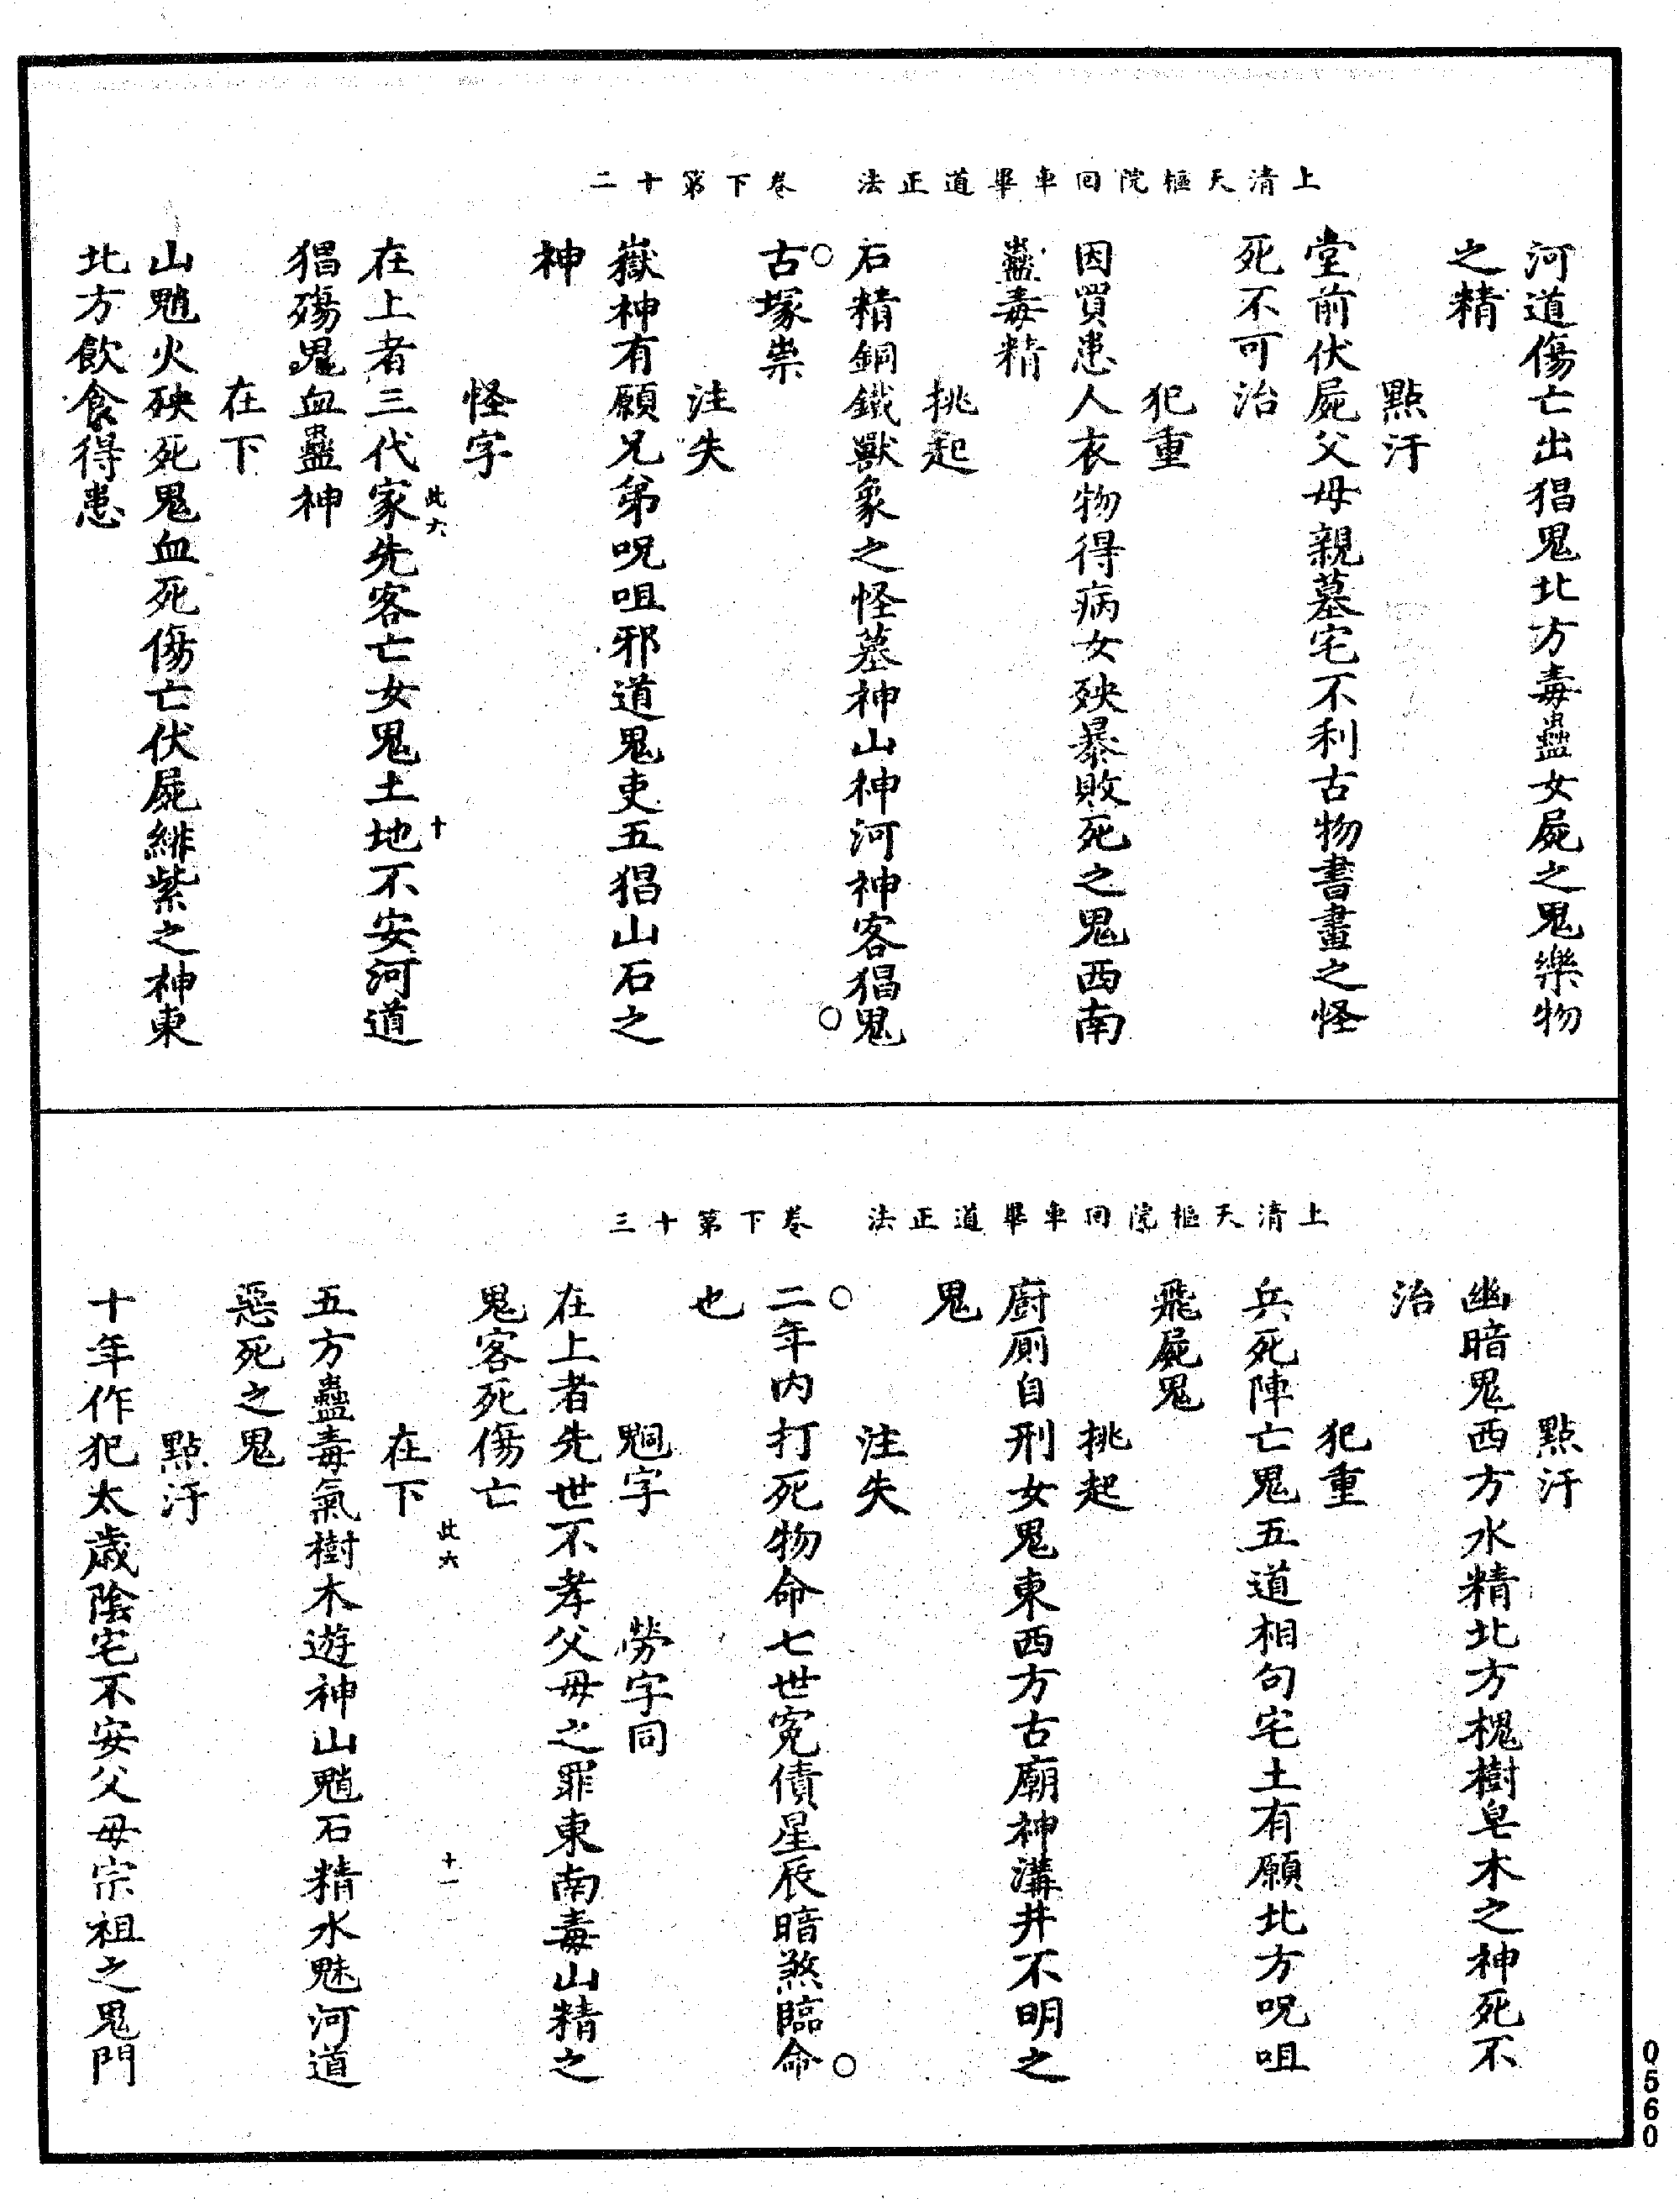 上清天樞院回車畢道正法　卷下第十二
河道傷亡出猖鬼北方毒蠱女屍之鬼樂物
之精
點汙
堂前伏屍父母親墓宅不利古物書畫之怪
死不可治
犯重
因買患人衣物得病女殃暴敗死之鬼西南
蠱毒精
挑起
石精銅鐵獸象之怪墓神山神河神客猖鬼
古塚祟
注失
嶽神有願兄弟呪咀邪道鬼吏五猖山石之
神
怪字
此六　十
在上者三代家先客亡女鬼土地不安河道
猖殤鬼血蠱神
在下
山魈火殃死鬼血死傷亡伏屍緋紫之神東
北方飲食得患
上清天樞院回車畢道正法　卷下第十三
點汙
幽暗鬼西方水精北方槐樹皂木之神死不
治
犯重
兵死陣亡鬼五道相句宅土有願北方呪咀
飛屍鬼
挑起
廚厠自刑女鬼東西方古廟神溝井不明之
鬼
注失
二年內打死物命七世冤債星辰暗煞臨命
也
魍字　勞字同
在上者先世不孝父母之罪東南毒山精之
鬼客死傷亡
此六　十一
在下
五方蠱毒氣樹木遊神山魈石精水魅河道
惡死之鬼
點汙
十年作犯太歲陰宅不安父母宗祖之鬼門
0560